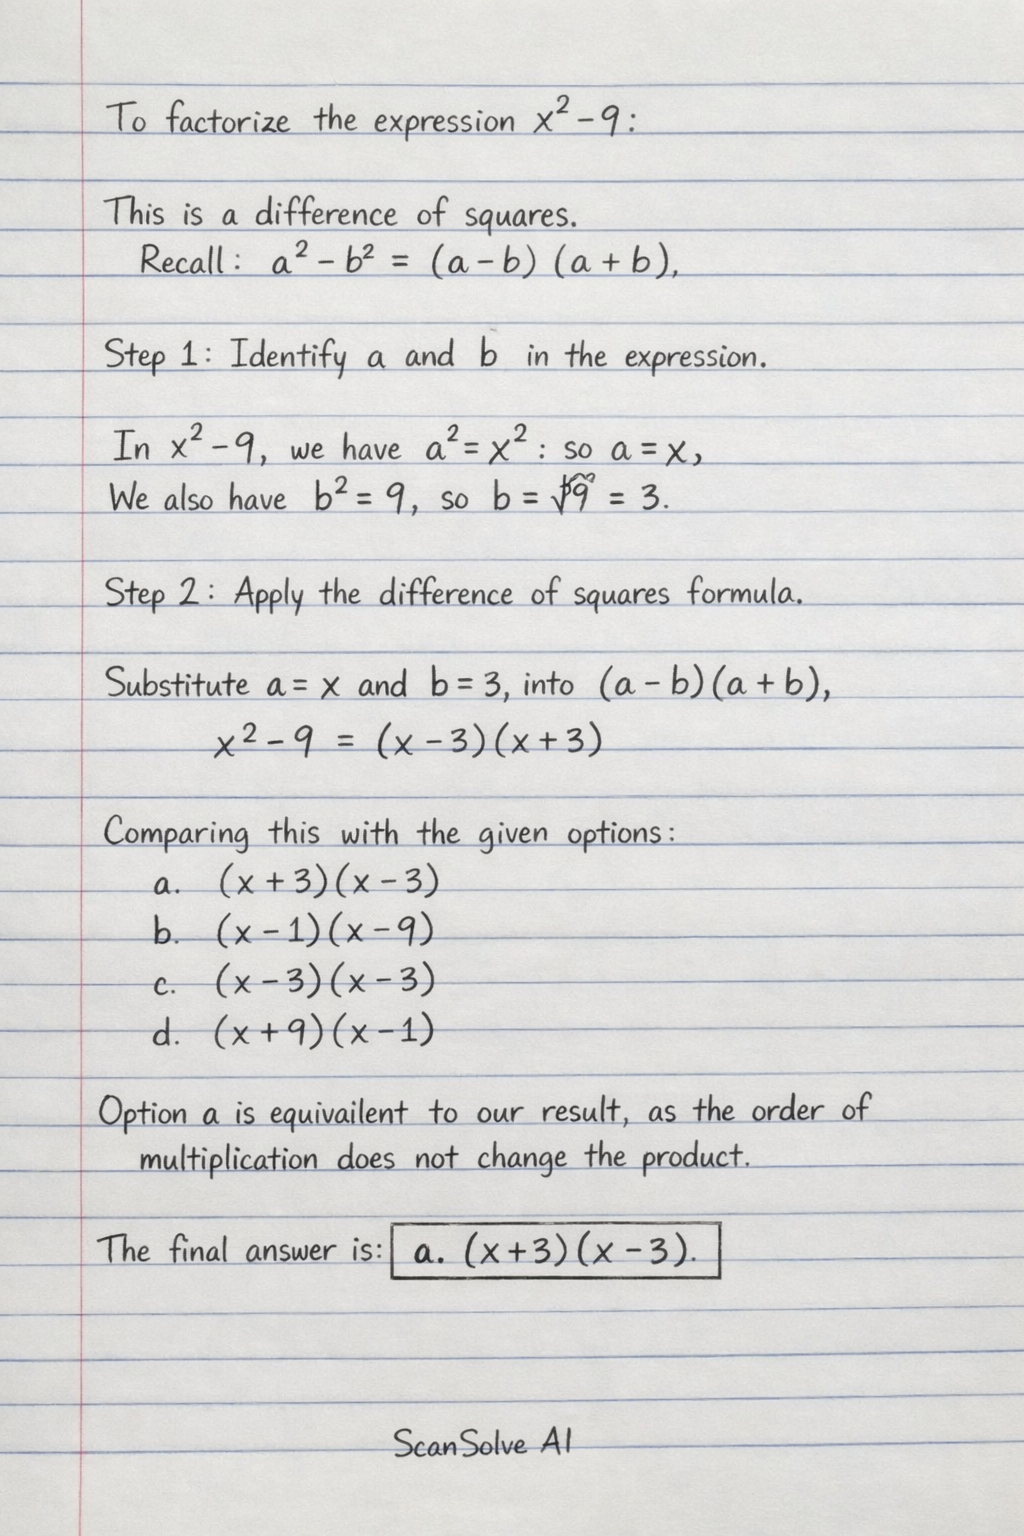 To factorize the expression x² - 9:
This is a difference of squares.
Recall: a² - b² = (a - b) (a + b),
Step 1: Identify a and b in the expression.
In x² - 9, we have a² = x² : so a = x,
We also have b² = 9, so b = √9 = 3.
Step 2: Apply the difference of squares formula.
Substitute a = x and b = 3, into (a - b)(a + b),
x² - 9 = (x - 3)(x + 3)
Comparing this with the given options:
a. (x + 3)(x - 3)
b. (x - 1)(x - 9)
c. (x - 3)(x - 3)
d. (x + 9)(x - 1)
Option a is equivailent to our result, as the order of
multiplication does not change the product.
The final answer is: a. (x+3)(x - 3).
ScanSolve AI